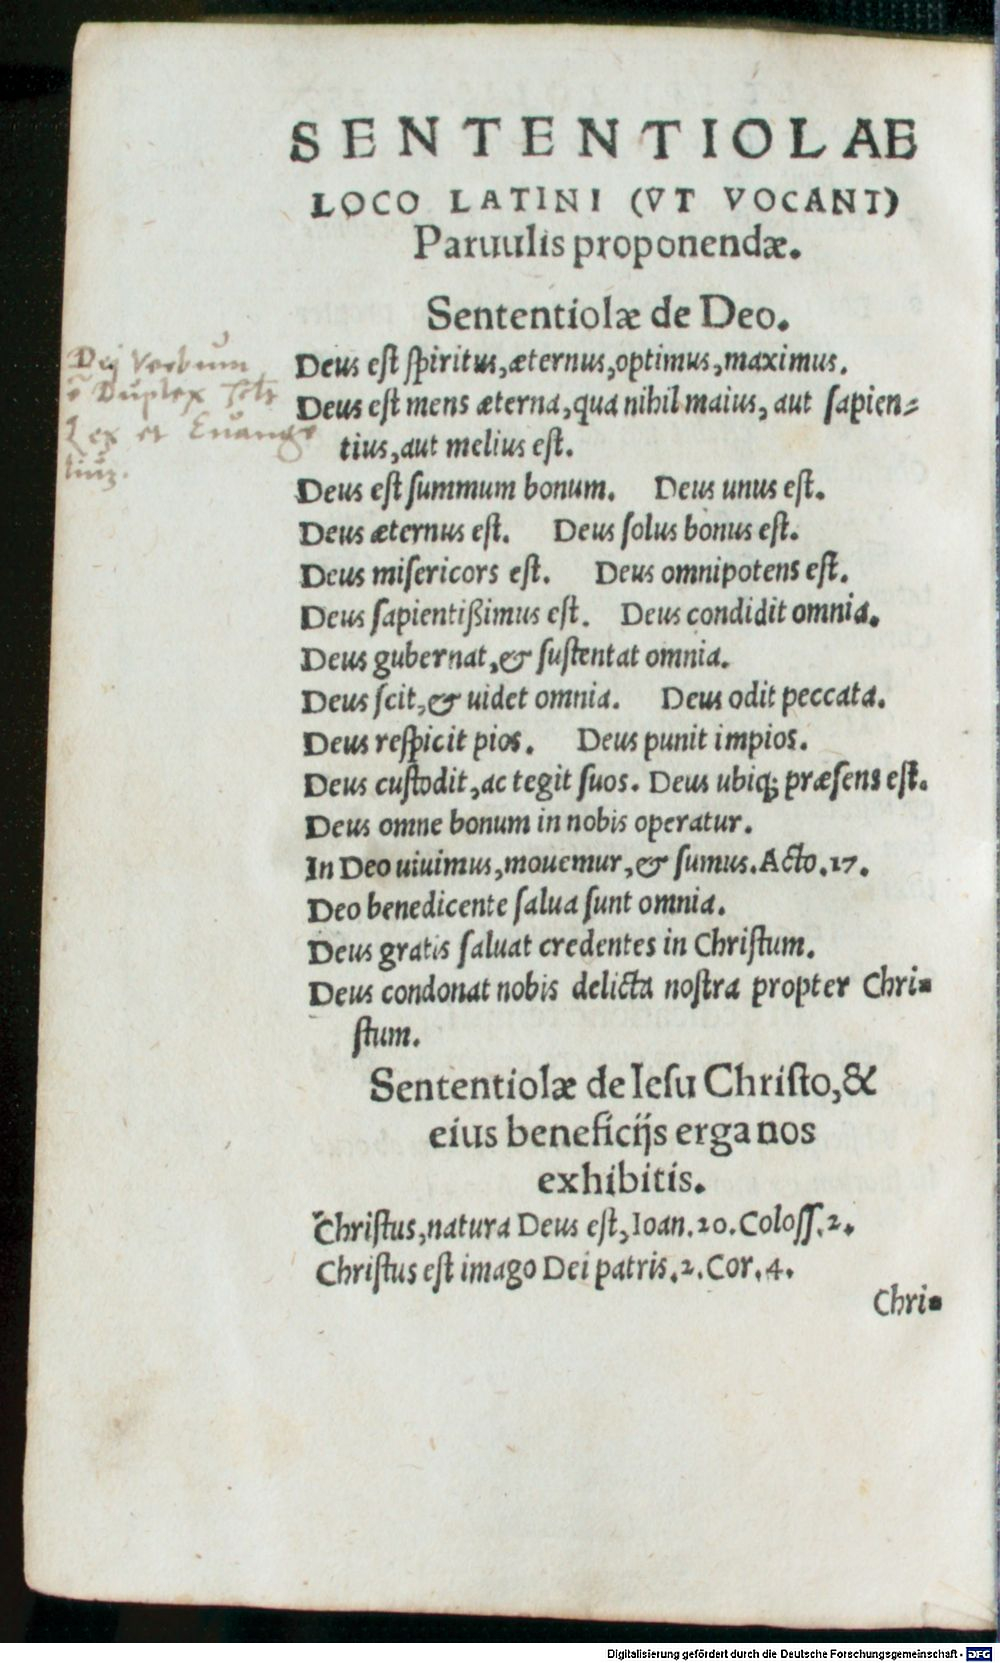 SENTENTIOLAE
LOCO LATINI (VT VOCANT)
Paruulis proponendæ.
Sententiolæ de Deo.
Dej Verbum
ē Duplex
Lex et Euange
liuz.
Deus eſt ſpiritus, æternus, optimus, maximus.
Deus eſt mens æterna, qua nihil maius, aut ſapien=
tius, aut melius eſt.
Deus eſt ſummum bonum. Deus unus eſt.
Deus æternus eſt. Deus ſolus bonus eſt.
Deus miſericors eſt. Deus omnipotens eſt.
Deus ſapientißimus eſt. Deus condidit omnia.
Deus gubernat, & ſuſtentat omnia.
Deus ſcit, & uidet omnia. Deus odit peccata.
Deus reſpicit pios. Deus punit impios.
Deus cuſtodit, ac tegit ſuos. Deus ubiq; præſens eſt.
Deus omne bonum in nobis operatur.
In Deo uiuimus, mouemur, & ſumus. Acto. 17.
Deo benedicente ſalua ſunt omnia.
Deus gratis ſaluat credentes in Chriſtum.
Deus condonat nobis delicta noſtra propter Chri=
ſtum.
Sententiolæ de Ieſu Chriſto, &
eius beneficijs erga nos
exhibitis.
Chriſtus, natura Deus eſt, Ioan. 20. Coloſſ. 2.
Chriſtus eſt imago Dei patris. 2. Cor. 4.
Chri=
Digitalisierung gefördert durch die Deutsche Forschungsgemeinschaft - DFG